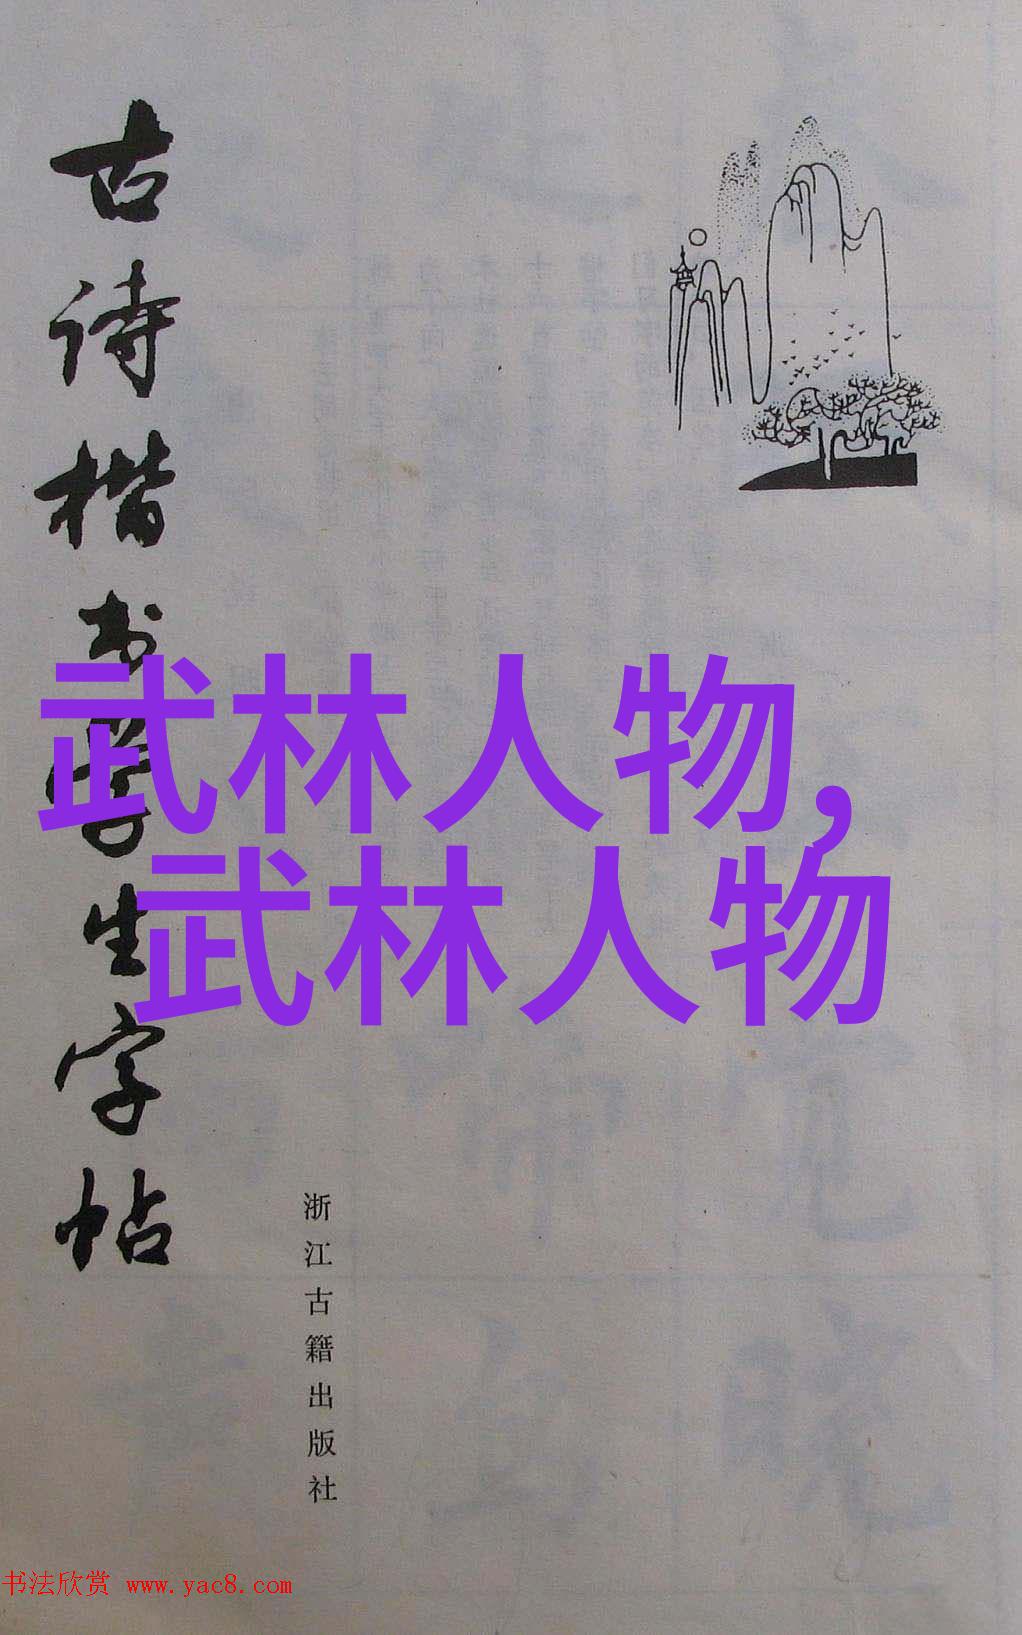 古诗楷书学生字帖
武林人物,
武林人物
浙江古籍出版社
书法欣赏 www.yac8.com